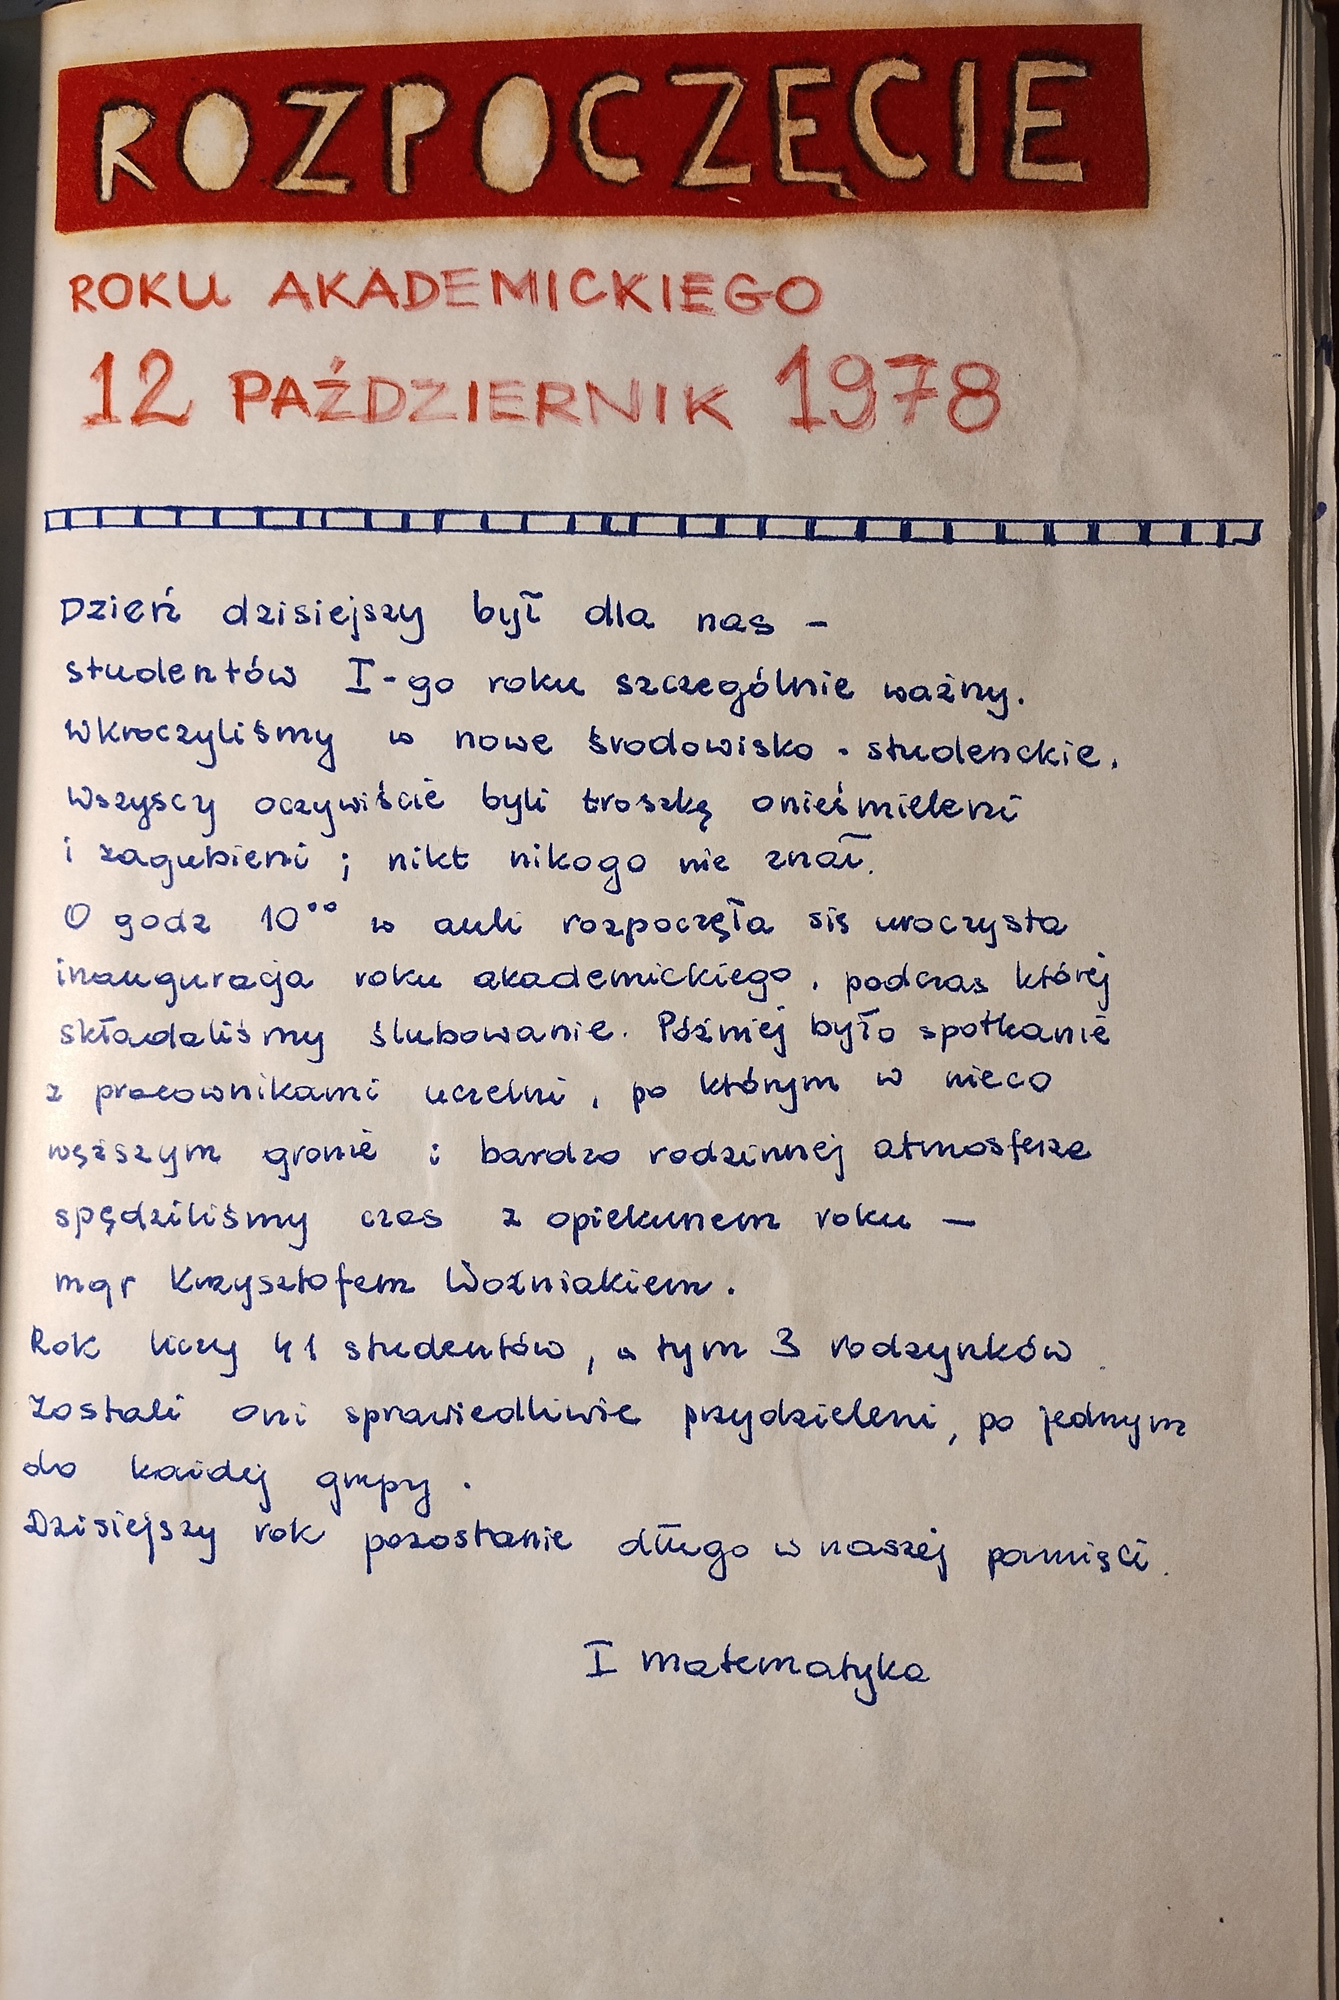 ROZPOCZĘCIE
ROKU AKADEMICKIEGO
12 PAŹDZIERNIK 1978
Dzień dzisiejszy był dla nas -
studentów I-go roku szczególnie ważny.
Wkroczyliśmy w nowe środowisko - studenckie.
Wszyscy oczywiście byli troszkę onieśmieleni
i zagubieni ; nikt nikogo nie znał.
O godz 10°° w auli rozpoczęła się uroczysta
inauguracja roku akademickiego, podczas której
składaliśmy ślubowanie. Później było spotkanie
z pracownikami uczelni, po którym w nieco
węższym gronie i bardzo rodzinnej atmosferze
spędziliśmy czas z opiekunem roku —
mgr Krzysztofem Woźniakiem.
Rok liczy 41 studentów, a tym 3 rodzynków.
Zostali oni sprawiedliwie przydzieleni, po jednym
do każdej grupy.
Dzisiejszy rok pozostanie długo w naszej pamięci.
I matematyka